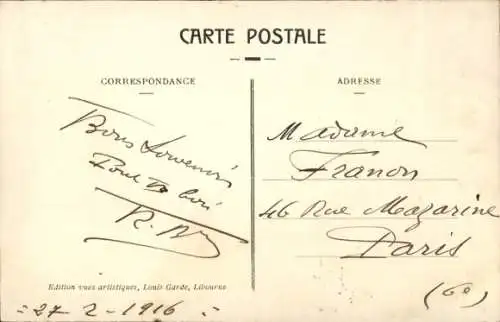 CARTE POSTALE
CORRESPONDANCE
Bons Souvenirs
Pour
R.
ADRESSE
Madame
Franon
46 Rue Mazarine
Paris
(6e)
Edition vues artistiques, Louis Garde, Libourne
= 27 - 2 - 1916 =